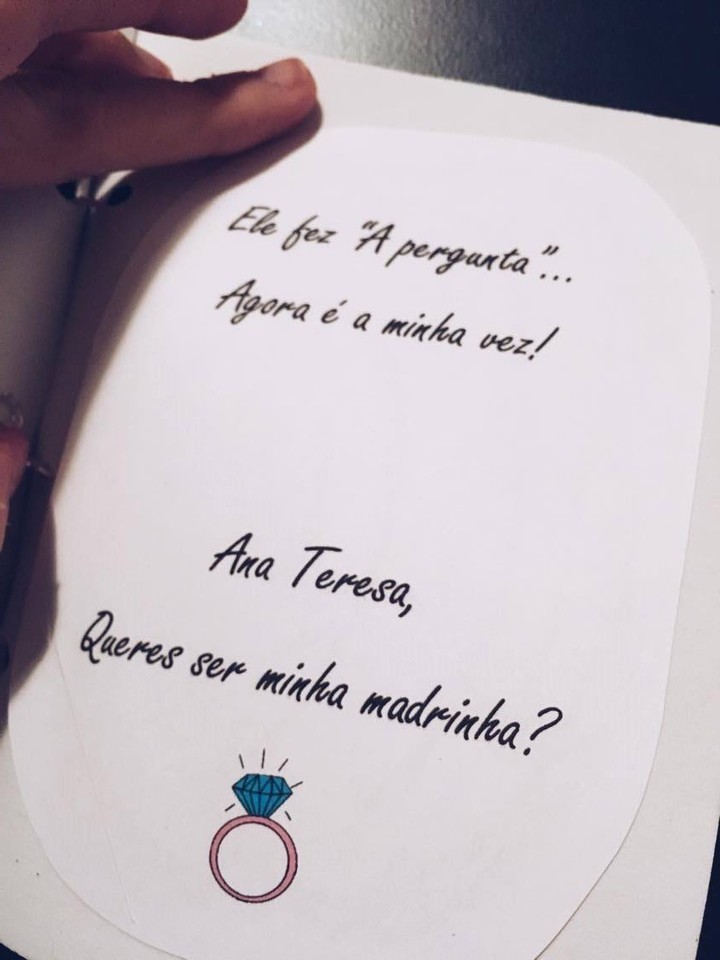 Ele fez "A pergunta"...
Agora é a minha vez!
Ana Teresa,
Queres ser minha madrinha?